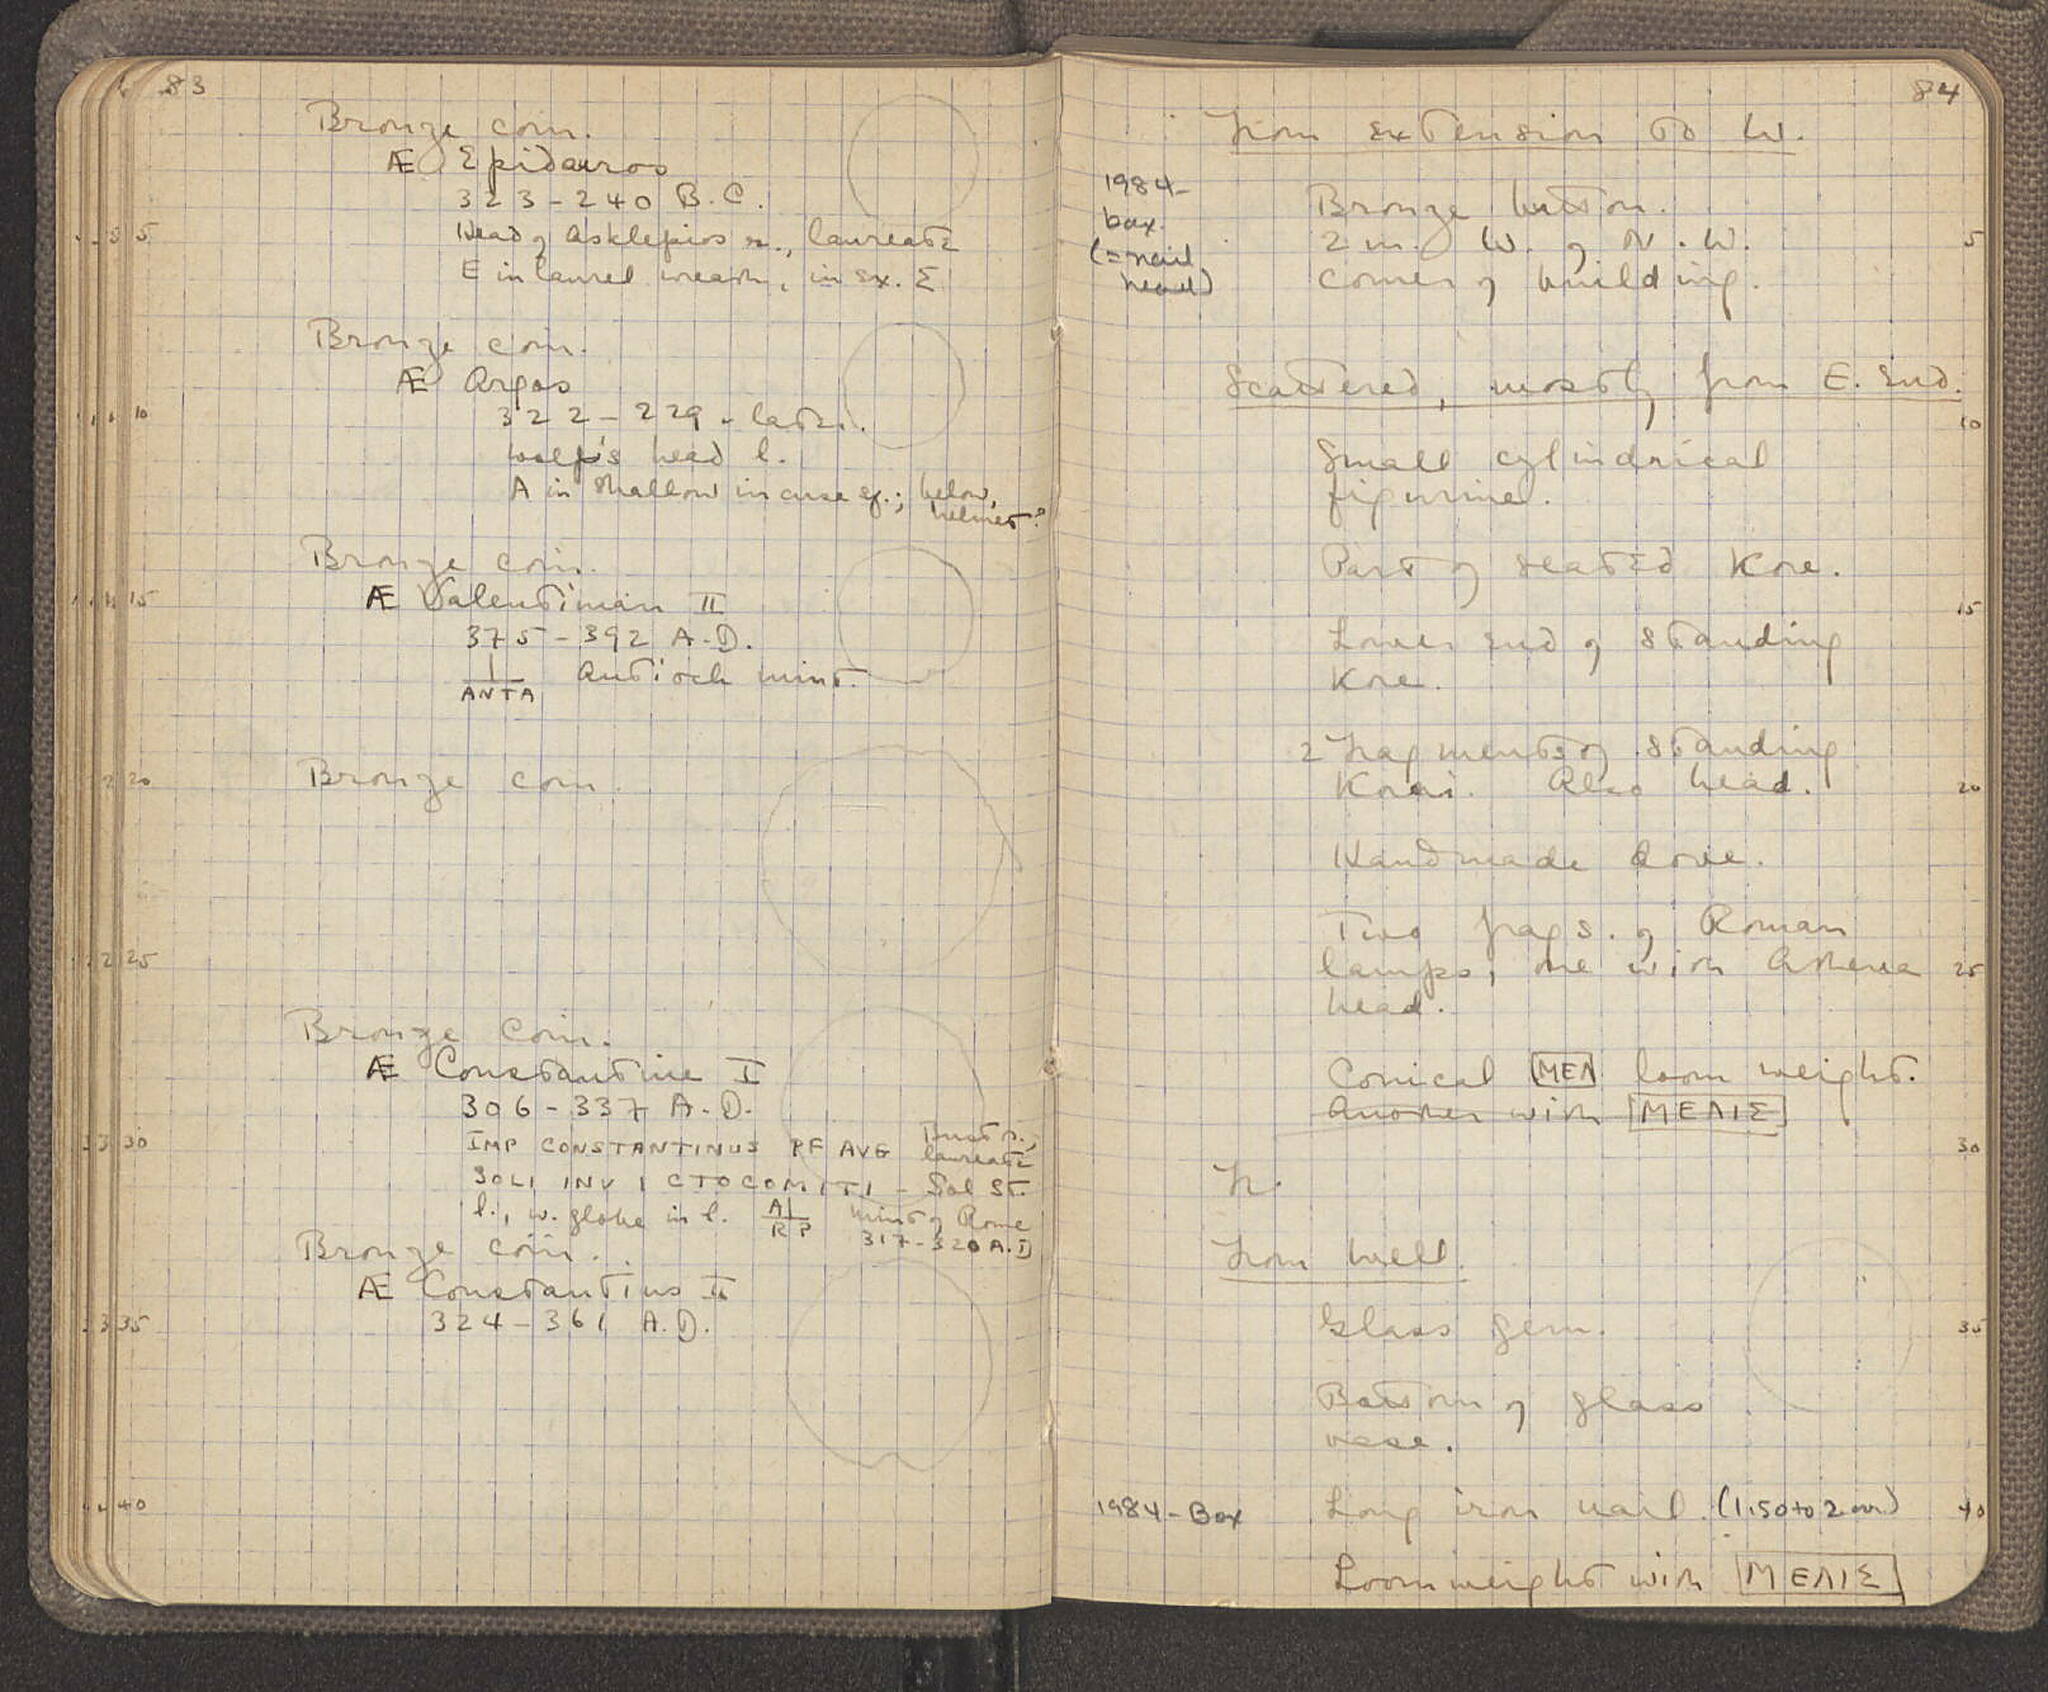 83
Bronze coin.
Æ Epidauros
323-240 B.C.
5
Head of Asklepios r., laureate
E in laurel wreath, in ex. Σ
Bronze coin.
Æ Argos
10
322-229-later.
Wolf's head l.
A in shallow incuse sq.; below,
helmet?
Bronze coin.
15
Æ Valentinian II
375-392 A.D.
ANTA Antioch mint.
20
Bronze coin.
25
Bronze coin.
Æ Constantine I
306-337 A.D.
30
IMP CONSTANTINUS PF AVG Bust r., laureate
SOLI INVICTO COMITI - Sol St.
l., w. globe in l. A| RP Mint of Rome
317-320 A.D
Bronze coin.
Æ Constantius II
35
324-361 A.D.
40
84
From extension to W.
1984-
box.
(=nail
head)
Bronze button.
2 m. W. of N.W. 5
corner of building.
Scattered, mostly from E. end.
10
Small cylindrical
figurine.
Part of seated Kore.
15
Lower end of standing
Kore.
2 fragments of standing
Korai. Also head. 20
Handmade dove.
Two frags. of Roman
lamps, one with Athena 25
head.
Conical ΜΕΛ loom weight.
Another with ΜΕΛΙΣ
30
F.
From well.
Glass gem. 35
Bottom of glass
vase.
1984-Box Long iron nail. (1.50 to 2.00) 40
Loomweight with ΜΕΛΙΣ